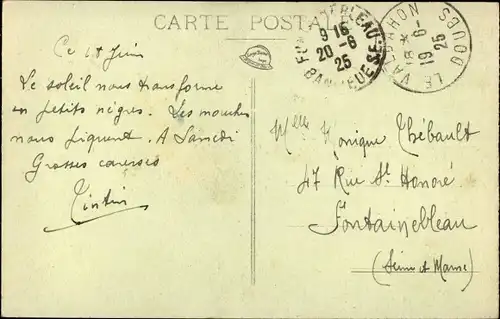 CARTE POSTALE
Ce 18 Juin
Le soleil nous transforme
en petits nègres. Les mouches
nous piquent. A Samedi
Grosses caresses
Tintin
FONTAINEBLEAU
9-15
20-6
25
BANLIEUE S.-ET-M.
LE VALDAHON
18 *
19-6
25
DOUBS
Melle Monique Thébault
47 Rue St Honoré
Fontainebleau
(Seine et Marne)